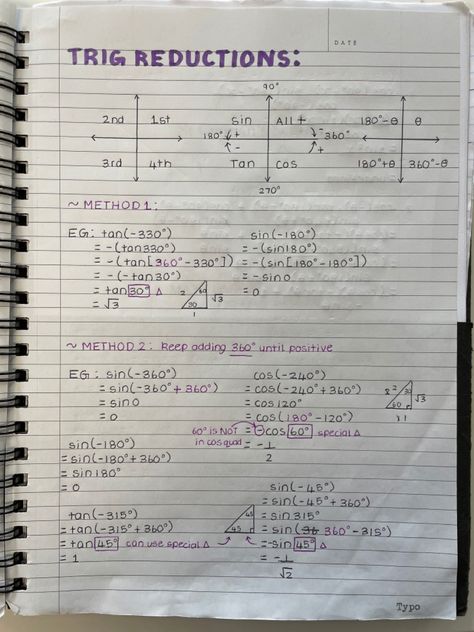 DATE
TRIG REDUCTIONS:
90°
2nd 1st
sin All +
180°-θ θ
180° + - - + 360°
3rd 4th
Tan cos
180°+θ 360°-θ
270°
~ METHOD 1:
EG: tan(-330°)
= -(tan330°)
= -(tan[360°-330°])
= -(-tan30°)
= tan 30° Δ
= √3
2 60 √3
30
1
sin(-180°)
= -(sin180°)
= -(sin[180°-180°])
= -sin0
= 0
~ METHOD 2: Keep adding 360° until positive
EG: sin(-360°)
= sin(-360°+360°)
= sin0
= 0
cos(-240°)
= cos(-240°+360°)
= cos120°
= cos(180°-120°)
60° is NOT in cos quad
= -cos 60° special Δ
= -1/2
2 30 √3
60
1
sin(-180°)
= sin(-180°+360°)
= sin180°
= 0
tan(-315°)
= tan(-315°+360°)
= tan 45° can use special Δ
= 1
45
45
sin(-45°)
= sin(-45°+360°)
= sin315°
= sin(36 360°-315°)
= -sin 45° Δ
= -1/√2
Typo